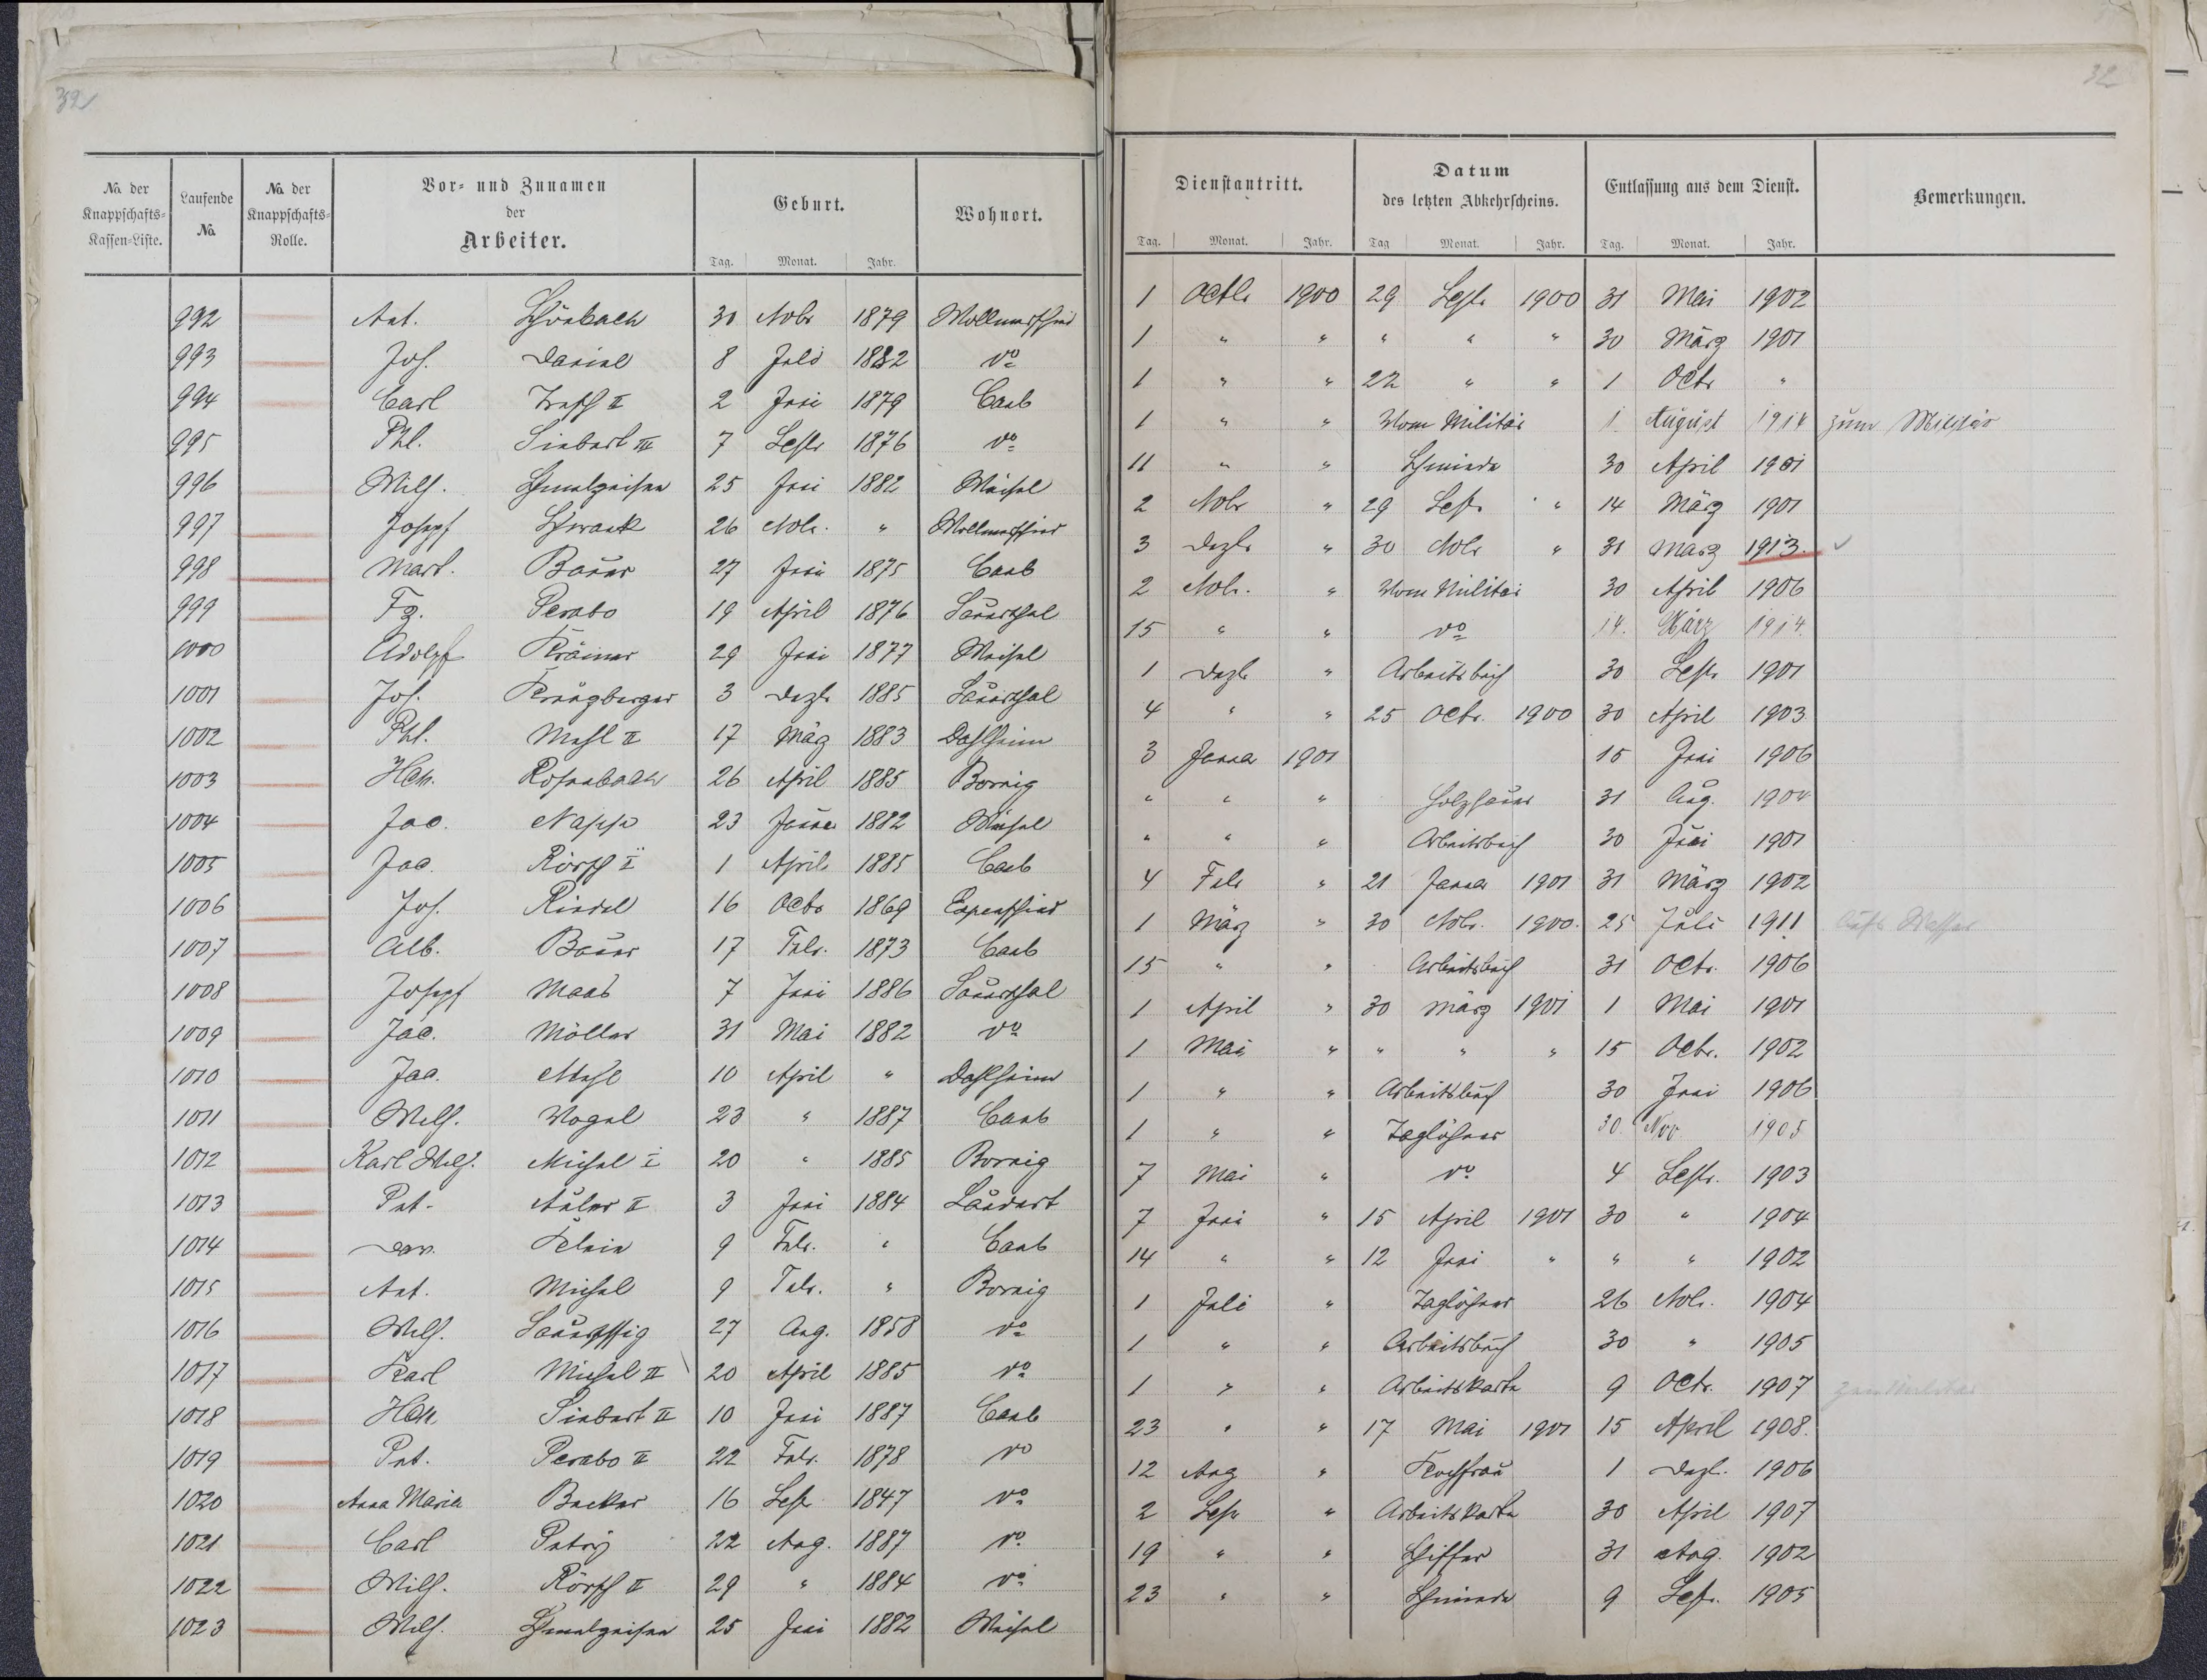 32
No. der Knappschafts-Kassen-Liste. | Laufende No. | No. der Knappschafts-Rolle. | Vor- und Zunamen der Arbeiter. | Geburt. Tag. Monat. Jahr. | Wohnort.
992 Ant. Schönbach 30 Nobr 1879
993 Jos. Daniel 8 Juli 1882 do
994 Carl II 2 Juni 1879 Caub
995 Phl. Siebert III 7 Septr 1876 do
996 Wilh. Schmelzeisen 25 Juni 1882 Weisel
997 Joseph Schwank 26 Nobr. "
998 Mart. Bauer 27 Juni 1875 Caub
999 Fz. Perabo 19 April 1876 Sauerthal
1000 Adolph Krämer 29 Juni 1877 Weisel
1001 Jos. Kreuzberger 3 Dezbr 1885 Sauerthal
1002 Phl. Mehl II 17 März 1883 Dahlheim
1003 Hch. Rosenbach 26 April 1885 Bornig
1004 Jac. 23 Januar 1882 Weisel
1005 Jac. Körsch I 1 April 1885 Caub
1006 Jos. Riedel 16 Octbr 1869 Espenschied
1007 Alb. Bauer 17 Febr. 1873 Caub
1008 Joseph Maas 7 Juni 1886 Sauerthal
1009 Jac. Möller 31 Mai 1882 do
1010 Jac. Mehl 10 April " Dahlheim
1011 Wilh. Vogel 23 " 1887 Caub
1012 Karl Wilh. Michel I 20 " 1885 Bornig
1013 Pet. Auler II 3 Juni 1884 Laudert
1014 Klein 9 Febr. " Caub
1015 Ant. Michel 9 Febr. " Bornig
1016 Wilh. Saueressig 27 Aug. 1858 do
1017 Karl Michel II 20 April 1885 do
1018 Hch. Siebert II 10 Juni 1887 Caub
1019 Pet. Perabo II 22 Febr. 1878 do
1020 Anna Maria Becker 16 Sept 1847 do
1021 Carl Petry 22 Aug. 1887 do
1022 Wilh. Körsch II 29 " 1884 do
1023 Wilh. Schmelzeisen 25 Juni 1882 Weisel
32
Dienstantritt. Tag. Monat. Jahr. | Datum des letzten Abkehrscheins. Tag Monat. Jahr. | Entlassung aus dem Dienst. Tag. Monat. Jahr. | Bemerkungen.
1 Octbr 1900 29 Septr 1900 31 Mai 1902
1 " " " " " 30 März 1901
1 " " 22 " " 1 Octr "
1 " " Vom Militär 1. August 1914 zum Militär
11 " " Schmiede 30 April 1901
2 Nobr " 29 Septr " 14 März 1901
3 Dezbr " 30 Nobr " 31 März 1913.
2 Nobr. " Vom Militär 30 April 1906
15 " " do 14. März 1914.
1 Dezbr " Arbeitsbuch 30 Septr 1901
4 " " 25 Octr. 1900 30 April 1903
3 Januar 1901 15 Juni 1906
" " " Holzhauer 31 Aug. 1904
" " " Arbeitsbuch 30 Juni 1901
4 Febr " 21 Januar 1901 31 März 1902
1 März " 30 Nobr. 1900. 25 Juli 1911
15 " " Arbeitsbuch 31 Octr. 1906
1 April " 30 März 1901 1 Mai 1901
1 Mai " " " " 15 Octr. 1902
1 " " Arbeitsbuch 30 Juni 1906
1 " " Taglöhner 30. Nov 1905
7 Mai " do 4 Septr. 1903
7 Juni " 15 April 1901 30 " 1904
14 " " 12 Juni " " " 1902
1 Juli " Taglöhner 26 Nobr. 1904
1 " " Arbeitsbuch 30 " 1905
1 " " Arbeitskarte 9 Octr. 1907 zum Militär
23 " " 17 Mai 1901 15 April 1908.
12 Aug " Kochfrau 1 Dezbr. 1906
2 Sept " Arbeitskarte 30 April 1907
19 " " Schiffer 31 Aug. 1902
23 " " Schmiede 9 Sept. 1905